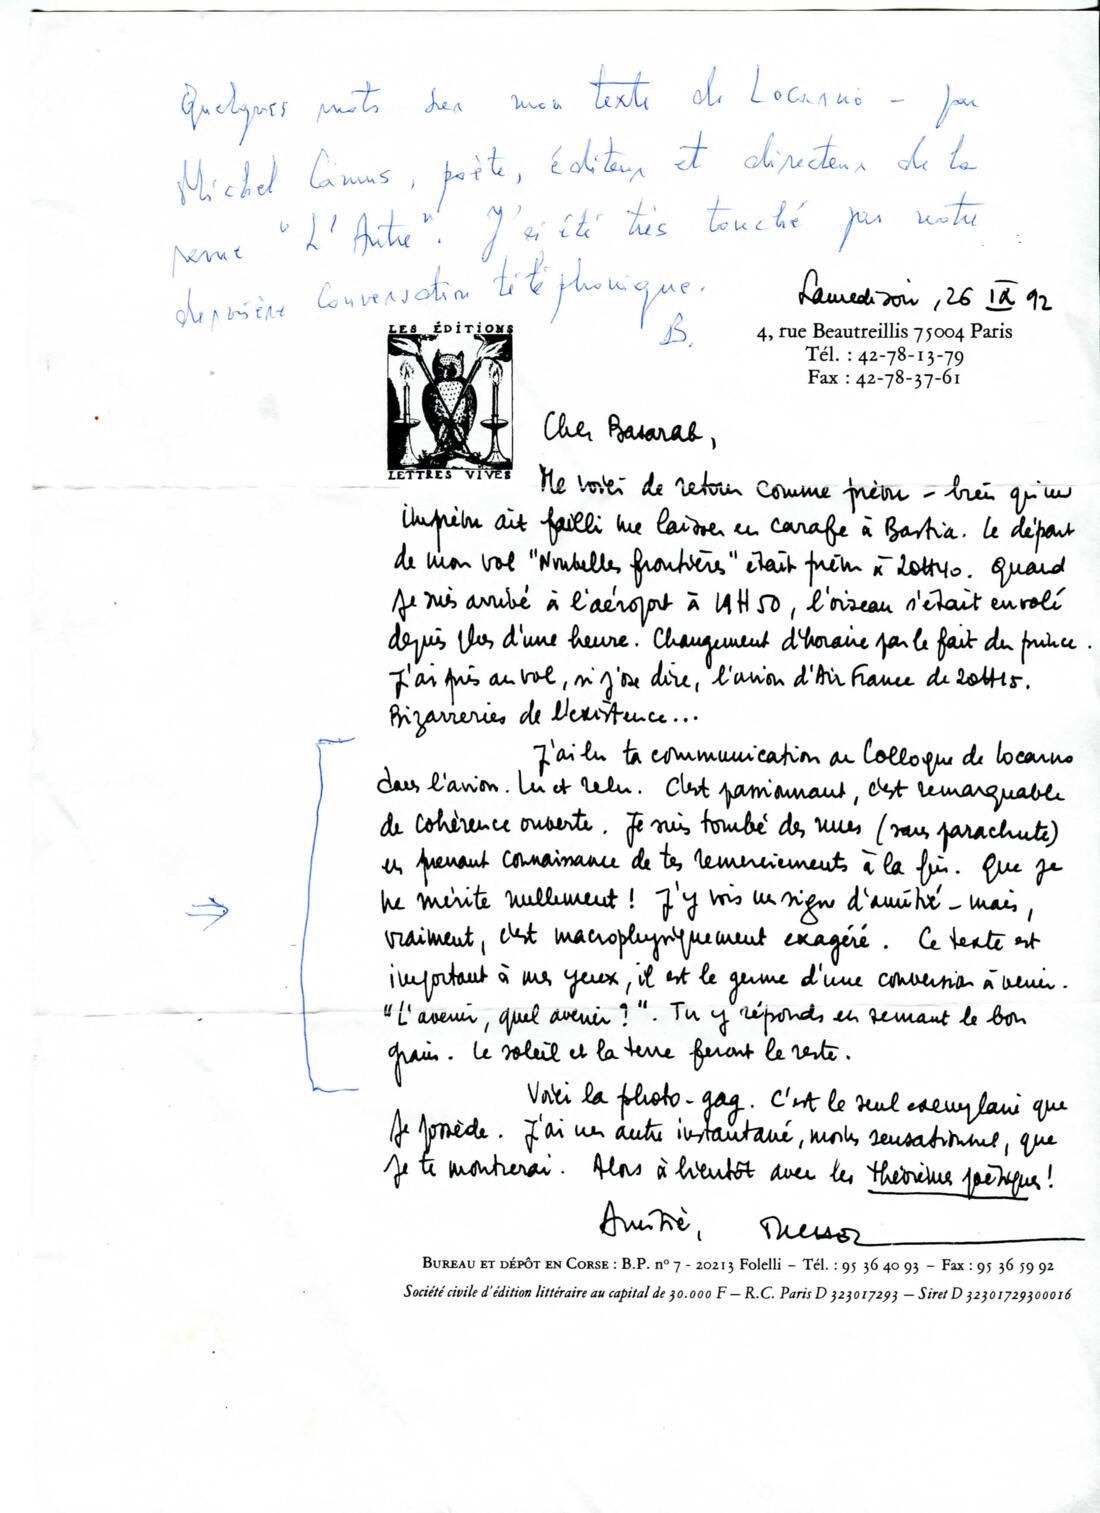 Quelques mots sur mon texte de Locarno – par
Michel Camus, poète, éditeur et directeur de la
revue "L'Autre". J'ai été très touché par notre
dernière conversation téléphonique.
B.
Samedi soir, 26 IX 92
4, rue Beautreillis 75004 Paris
Tél. : 42-78-13-79
Fax : 42-78-37-61
LES ÉDITIONS
LETTRES VIVES
Cher Basarab,
Me voici de retour comme prévu – bien qu'un
imprévu ait failli me laisser en carafe à Bastia. Le départ
de mon vol "Nouvelles frontières" était prévu à 20H40. Quand
je suis arrivé à l'aéroport à 19H50, l'oiseau s'était envolé
depuis plus d'une heure. Changement d'horaire par le fait du prince.
J'ai pris au vol, si j'ose dire, l'avion d'Air France de 20H15.
Bizarreries de l'existence...
J'ai lu ta communication au Colloque de Locarno
dans l'avion. Lu et relu. C'est passionnant, c'est remarquable
de cohérence ouverte. Je suis tombé des nues (sans parachute)
en prenant connaissance de tes remerciements à la fin. Que je
ne mérite nullement ! J'y vois un signe d'amitié – mais,
vraiment, c'est macrophysiquement exagéré. Ce texte est
important à mes yeux, il est le germe d'une conversion à venir.
"L'avenir, quel avenir ?". Tu y réponds en semant le bon
grain. Le soleil et la terre feront le reste.
Voici la photo-gag. C'est le seul exemplaire que
je possède. J'ai un autre instantané, moins sensationnel, que
je te montrerai. Alors à bientôt avec les théorèmes poétiques !
Amitié,
BUREAU ET DÉPÔT EN CORSE : B.P. nº 7 - 20213 Folelli – Tél. : 95 36 40 93 – Fax : 95 36 59 92
Société civile d'édition littéraire au capital de 30.000 F – R.C. Paris D 323017293 – Siret D 32301729300016